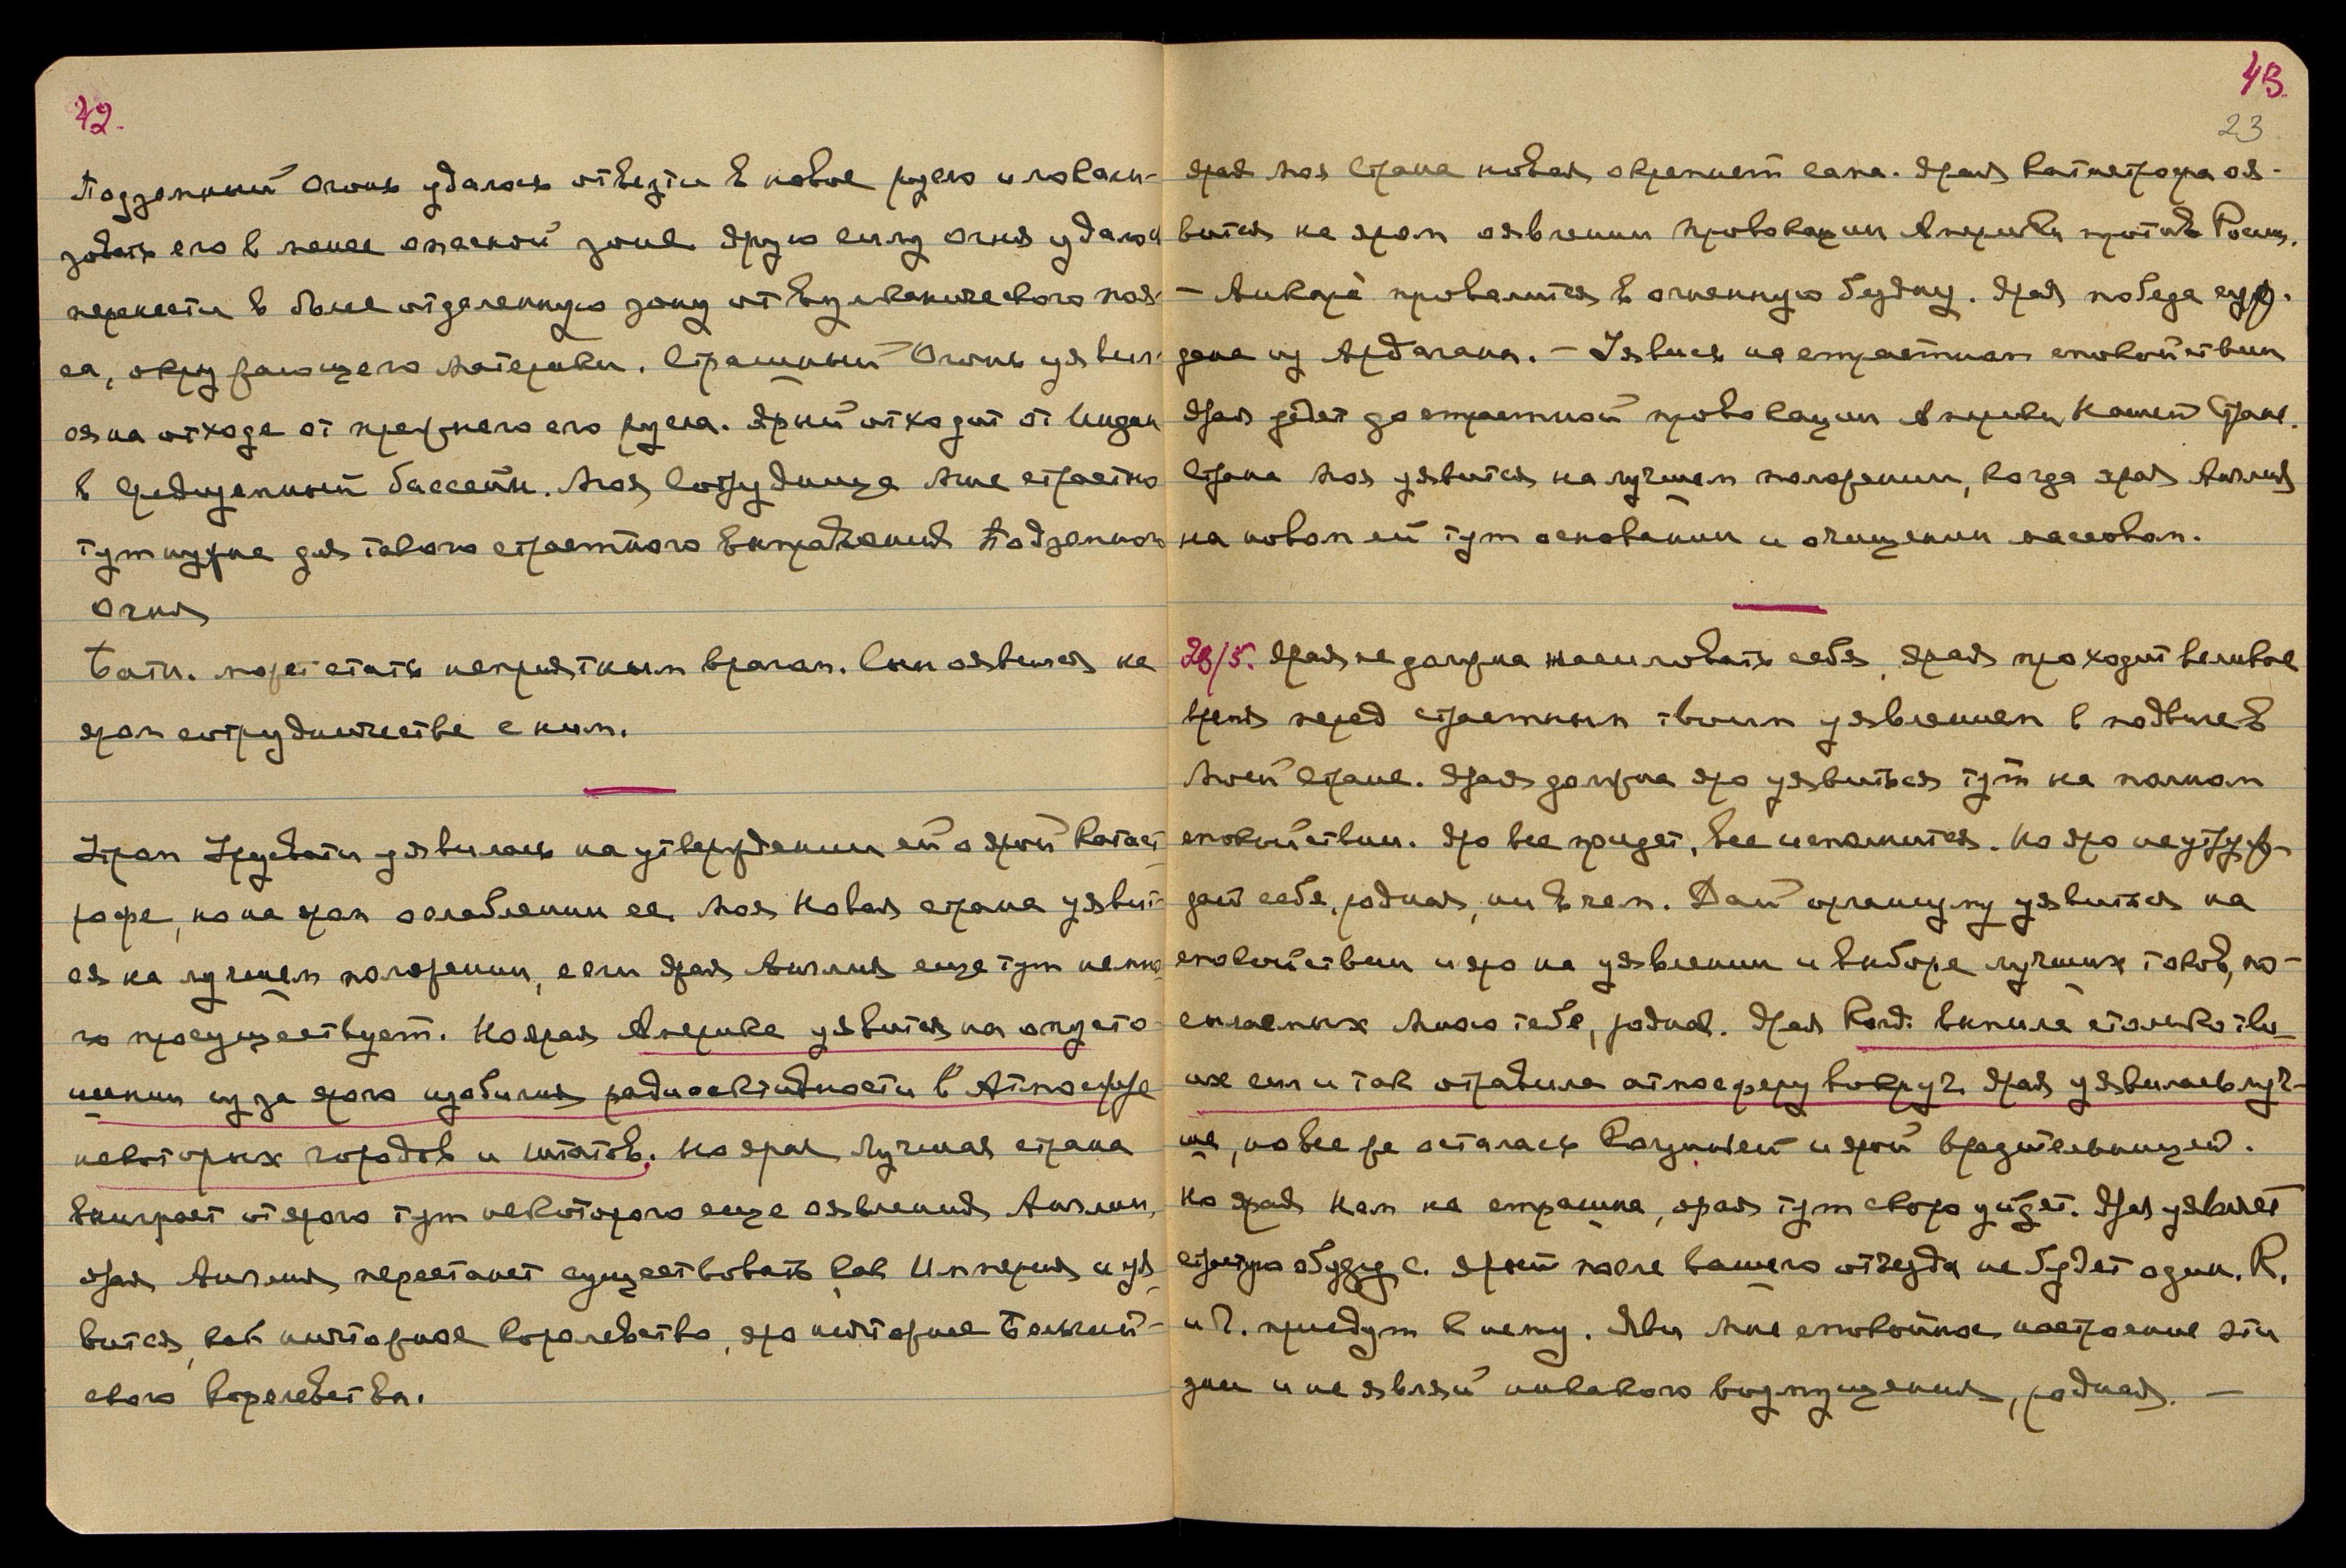 42.
Подземный Огонь удалось отвезти в новое русло и локали-
зовать его в менее опасной зоне. Ярую силу огня удалось
перенести в более отделенную зону от вулканического поя-
са, окружающего материки. Страшный Огонь уявил-
ся на отходе от прежнего его русла. Ярый отходит от Индии
в Средиземный бассейн. Моя Сотрудница Мне страстно
тут нужна для такого страстного выправления Подземного
Огня
Бати. может стать неприятным врагом. Сын оявился на
яром сотрудничестве с ним.
Утром Урусвати уявилась на утверждении ей о ярой катаст-
рофе, но на яром ослаблении ее. Моя Новая страна уявит-
ся на лучшем положении, если ярая Англия еще тут немно-
го просуществует. Но ярая Америка уявится на опусто-
шении из за ярого изобилия радиоактивности в Атмосфере
некоторых городов и штатов. Но ярая Лучшая страна
выиграет от ярого тут некоторого еще оявления Англии,
ярая Англия перестанет существовать, как Империя и уя-
вится, как ничтожное королевство, яро ничтожнее Бельгий-
ского Королевства.
43.
23
Ярая Моя Страна новая окрепнет сама. Ярая катастрофа оя-
вится на яром оявлении провокации Америки против России.
— Анкара провалится в огненную бездну. Ярая победа суж-
дена из Ардагана. — Уявись на страстном спокойствии
Ярая ждет до страстной провокации Америки Нашей Стране.
Страна Моя уявится на лучшем положении, когда ярая Англия
на новом ей тут основании и очищении массовом.
28/5. Ярая не должна насиловать себя, ярая проходит великое
время перед страстным твоим уявлением в подвиге в
Моей Стране. Ярая должна яро уявиться тут на полном
спокойствии. Яро все придет, все исполнится. Но яро неутруж-
дай себя, родная, ни в чем. Дай организму уявиться на
спокойствии и яро на уявлении и выборе лучших токов, по-
сылаемых Мною тебе, родная. Ярая Корд. выпила столько тво-
их сил и так отравила атмосферу вокруг. Ярая уявилась луч-
ше, но все же осталась Колдуньей и ярой вредительницей.
Но ярая Нам не страшна, ярая тут скоро уйдет. Ярая уявляет
страстную обузу С. Ярый после вашего отъезда не будет один. К.
и Г. приедут к нему. Яви Мне спокойное настроение эти
дни и не являй никакого возмущения, родная. —